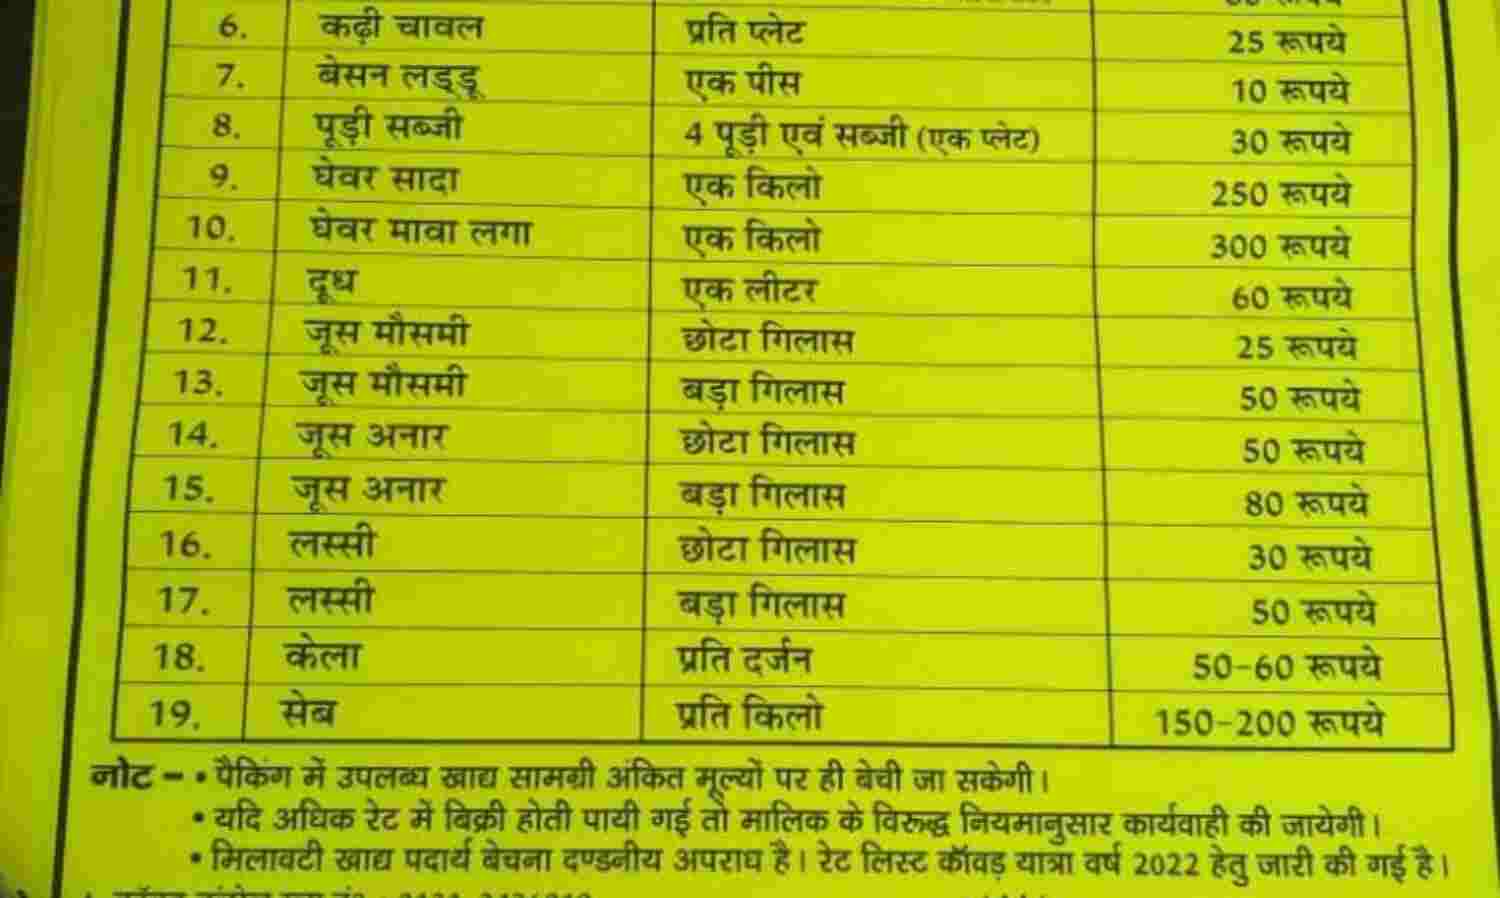 6. कढ़ी चावल प्रति प्लेट 25 रूपये
7. बेसन लड्डू एक पीस 10 रूपये
8. पूड़ी सब्जी 4 पूड़ी एवं सब्जी (एक प्लेट) 30 रूपये
9. घेवर सादा एक किलो 250 रूपये
10. घेवर मावा लगा एक किलो 300 रूपये
11. दूध एक लीटर 60 रूपये
12. जूस मौसमी छोटा गिलास 25 रूपये
13. जूस मौसमी बड़ा गिलास 50 रूपये
14. जूस अनार छोटा गिलास 50 रूपये
15. जूस अनार बड़ा गिलास 80 रूपये
16. लस्सी छोटा गिलास 30 रूपये
17. लस्सी बड़ा गिलास 50 रूपये
18. केला प्रति दर्जन 50-60 रूपये
19. सेब प्रति किलो 150-200 रूपये
नोट - • पैकिंग में उपलब्ध खाद्य सामग्री अंकित मूल्यों पर ही बेची जा सकेगी।
• यदि अधिक रेट में बिक्री होती पायी गई तो मालिक के विरूद्ध नियमानुसार कार्यवाही की जायेगी।
• मिलावटी खाद्य पदार्थ बेचना दण्डनीय अपराध है। रेट लिस्ट कॉवड़ यात्रा वर्ष 2022 हेतु जारी की गई है।